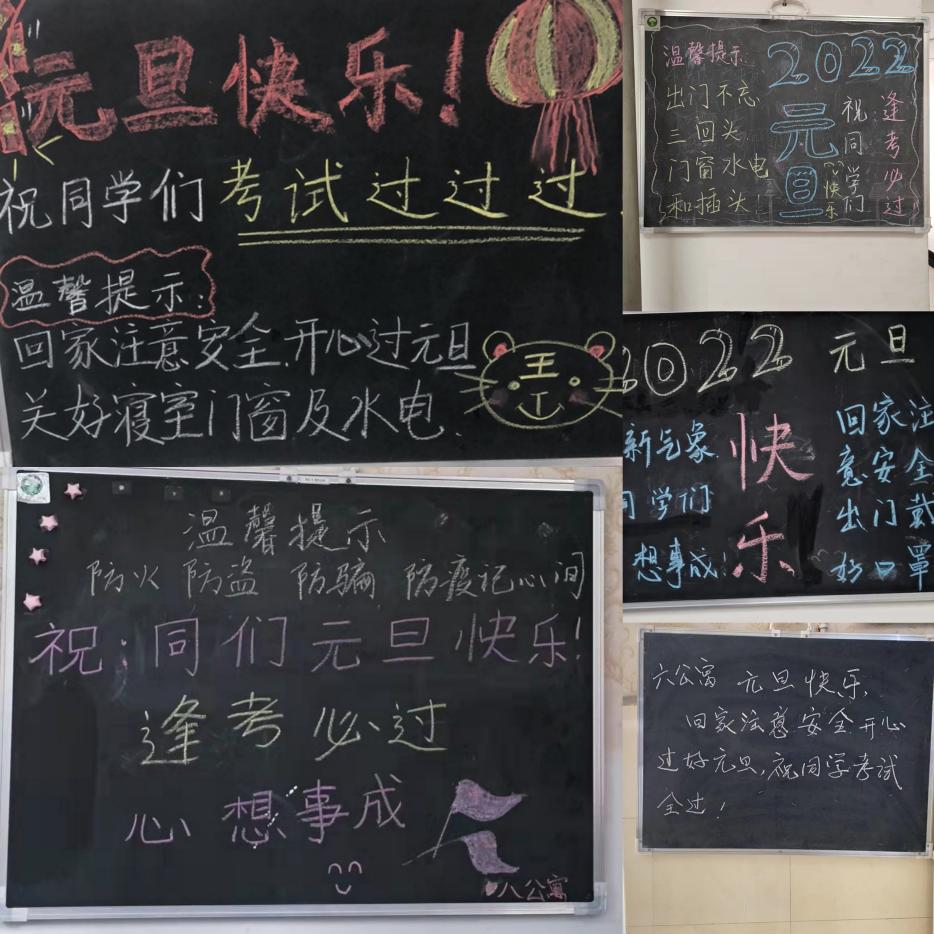 元旦快乐!
祝同学们考试过过过
温馨提示:
回家注意安全.开心过元旦
关好寝室门窗及水电.
王
温馨提示
出门不忘
三回头
门窗水电
和插头!
2022
元旦
快乐
祝同学们
逢考必过!
2022 元旦
快乐
新气象
同学们
想事成!
回家注
意安全
出门戴
好口罩
温馨提示
防火 防盗 防骗 防疫记心间
祝:同们元旦快乐!
逢考必过
心想事成
八公寓
六公寓 元旦快乐,
回家注意安全.开心
过好元旦,祝同学考试
全过!